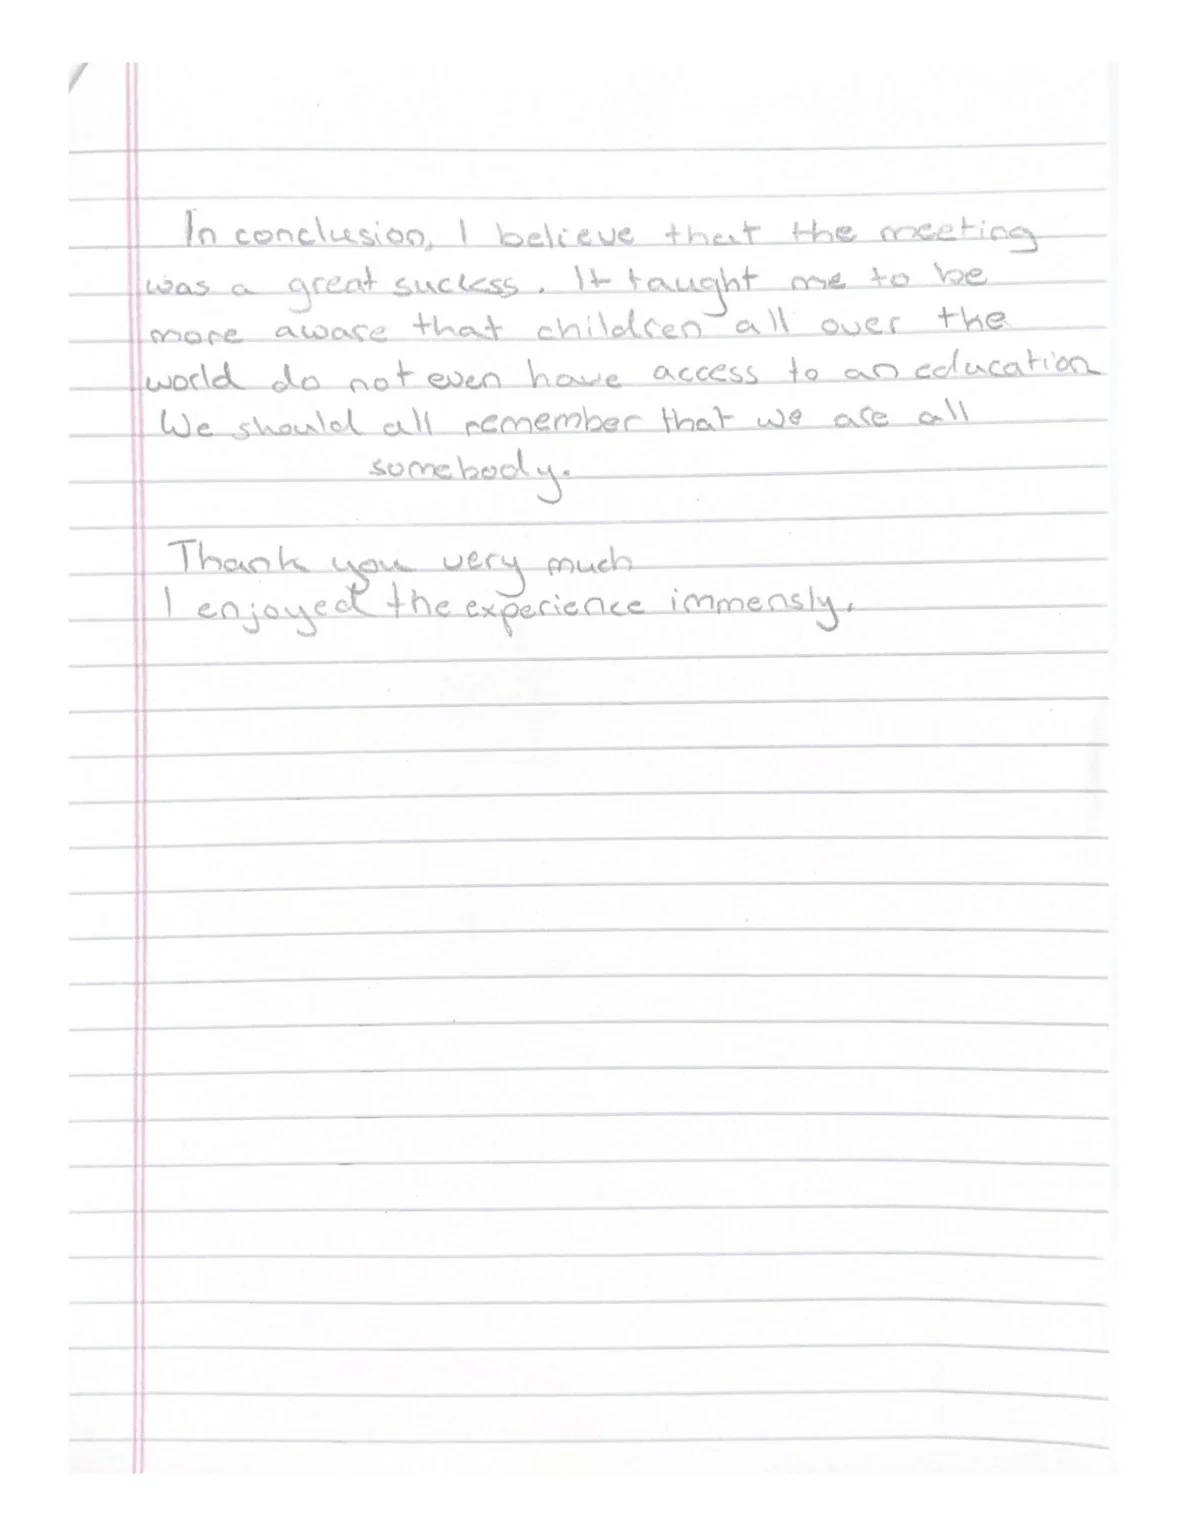 In conclusion, I believe that the meeting
was a great suckss. It taught me to be
more aware that children all over the
world do not even have access to an education
We should all remember that we are all
somebody.
Thank you very much
I enjoyed the experience immensly.